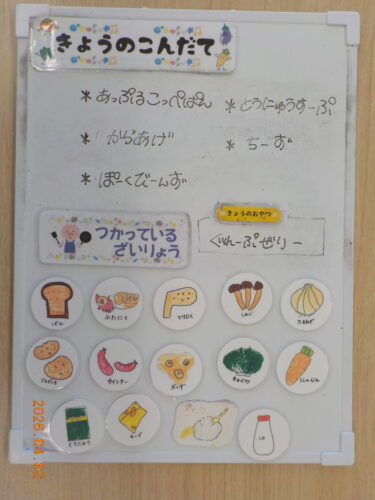 きょうのこんだて
*あっぷるこっぺぱん
*とうにゅうすーぷ
*からあげ
*ちーず
*ぽーくびーんず
きょうのおやつ
ぐれーぷぜりー
つかっている
ざいりょう
ぱん
ぶたにく
とりにく
しめじ
たまねぎ
じゃがいも
ウインナー
だいず
キャベツ
にんじん
とうにゅう
チーズ
しお
2026.04.02